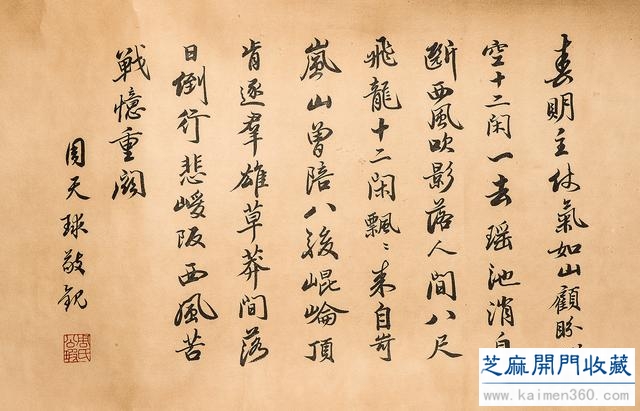 春明立仗氣如山顧盼
空十二閑一去瑶池消
斷西風吹影落人間八尺
飛龍十二閑飄〻來自岢
嵐山曾陪八駿崐崘頂
肯逐羣雄草莽間落
日倒行悲峻阪西風苦
戰憶重關
周天球敬觀
周氏公瑕
芝麻開門收藏
www.kaimen360.com